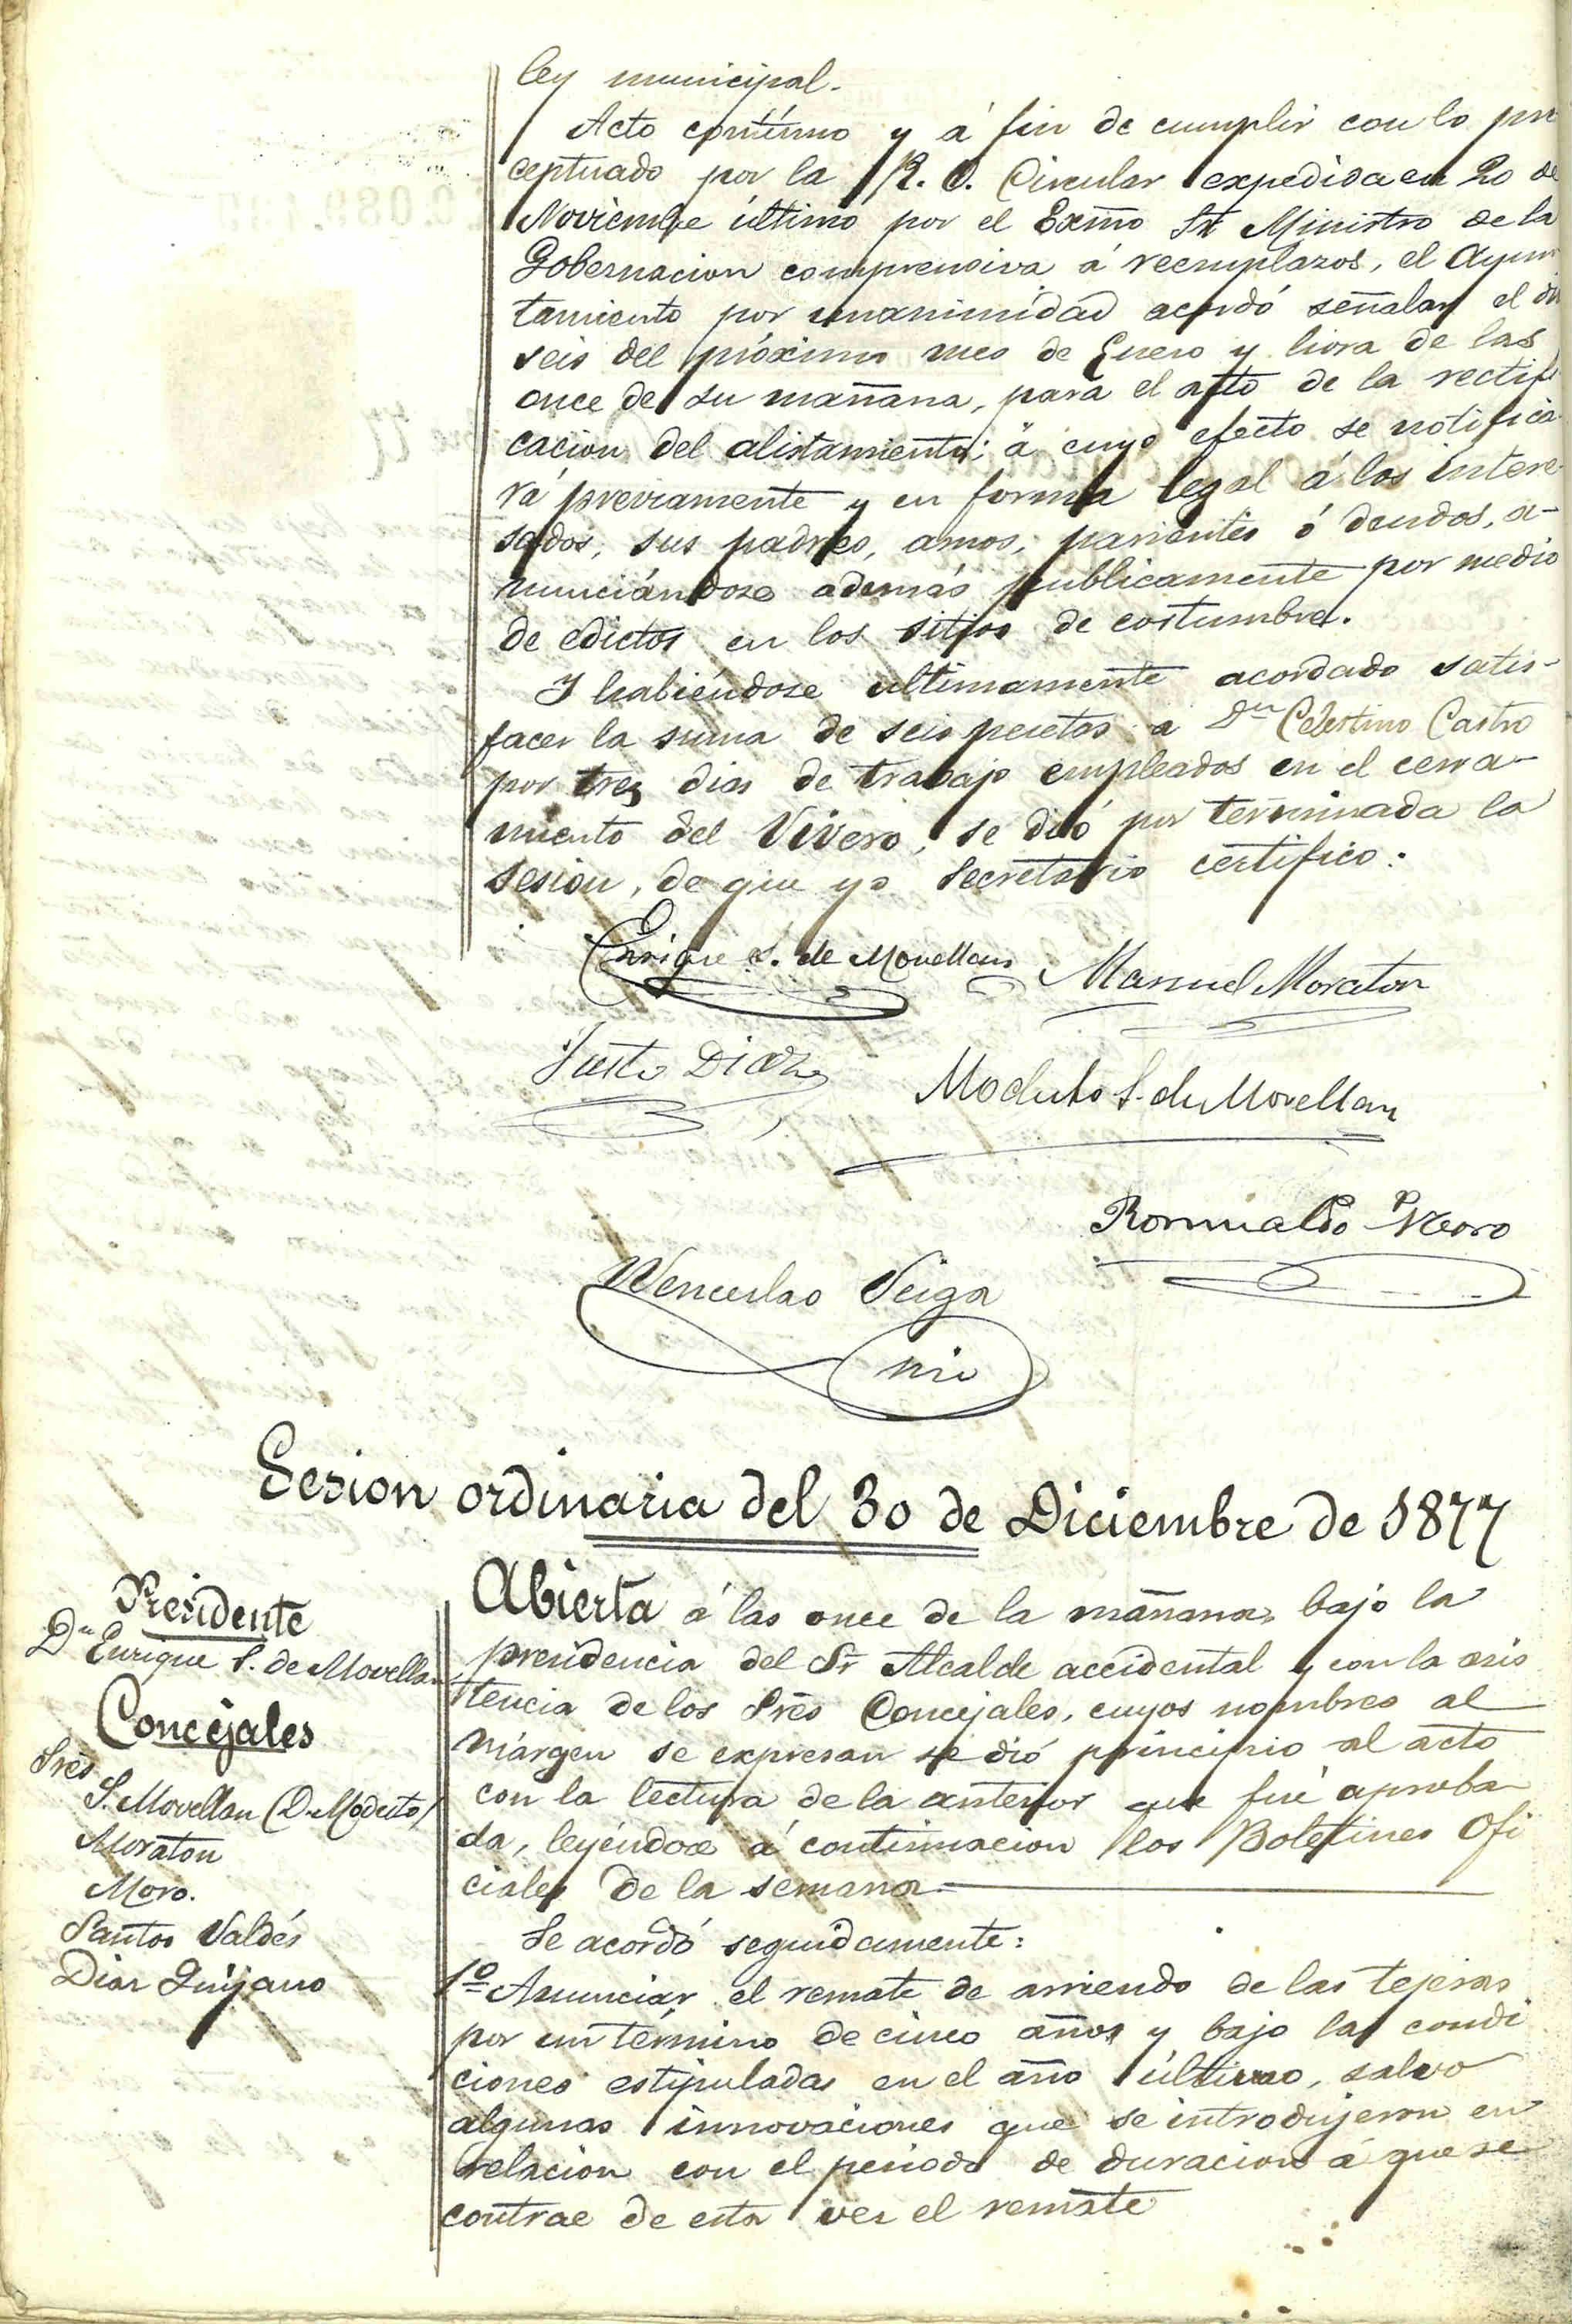 ley municipal.
Acto contínuo y á fin de cumplir con lo pre
ceptuado por la R. O. Circular expedida en 20 de
Noviembre último por el Exmo Sr Ministro de la
Gobernacion comprensiva á reemplazos, el Ayun
tamiento por unanimidad acordó señalar el di
seis del próximo mes de Enero y hora de las
once de su mañana, para el acto de la rectifi
cacion del alistamiento; á cuyo efecto se notifica
rá previamente y en forma legal á los intere-
sados, sus padres, amos, parientes ó deudos, a-
nunciándose además publicamente por medio
de edictos en los sitios de costumbre.
Y habiéndose ultimamente acordado satis-
facer la suma de seis pesetas a Dn Celestino Castro
por tres dias de trabajo empleados en el cerra-
miento del Vivero, se dió por terminada la
sesion, de que yo Secretario certifico:
Enrique S. de Movellan Manuel Moraton
Justo Diaz
Modesto S. de Movellan
Romualdo Moro
Wenceslao Veiga
Sesion ordinaria del 30 de Diciembre de 1877
Presidente
Dn Enrique S. de Movellan
Concejales
Sres
S. Movellan (D. Modesto)
Moraton
Moro.
Santos Valdés
Diaz Quijano
Abierta á las once de la mañana, bajo la
presidencia del Sr Alcalde accidental y con la asis
tencia de los Sres Concejales, cuyos nombres al
márgen se expresan se dió principio al acto
con la lectura de la anterior que fué aproba
da, leyéndose á continuacion los Boletines Ofi
ciales de la semana.
Se acordó seguidamente:
1º Anunciar el remate de arriendo de las tejeras
por un término de cinco años y bajo las condi
ciones estipuladas en el año último, salvo
algunas innovaciones que se introdujeron en
relacion con el periodo de duracion á que se
contrae de esta vez el remate